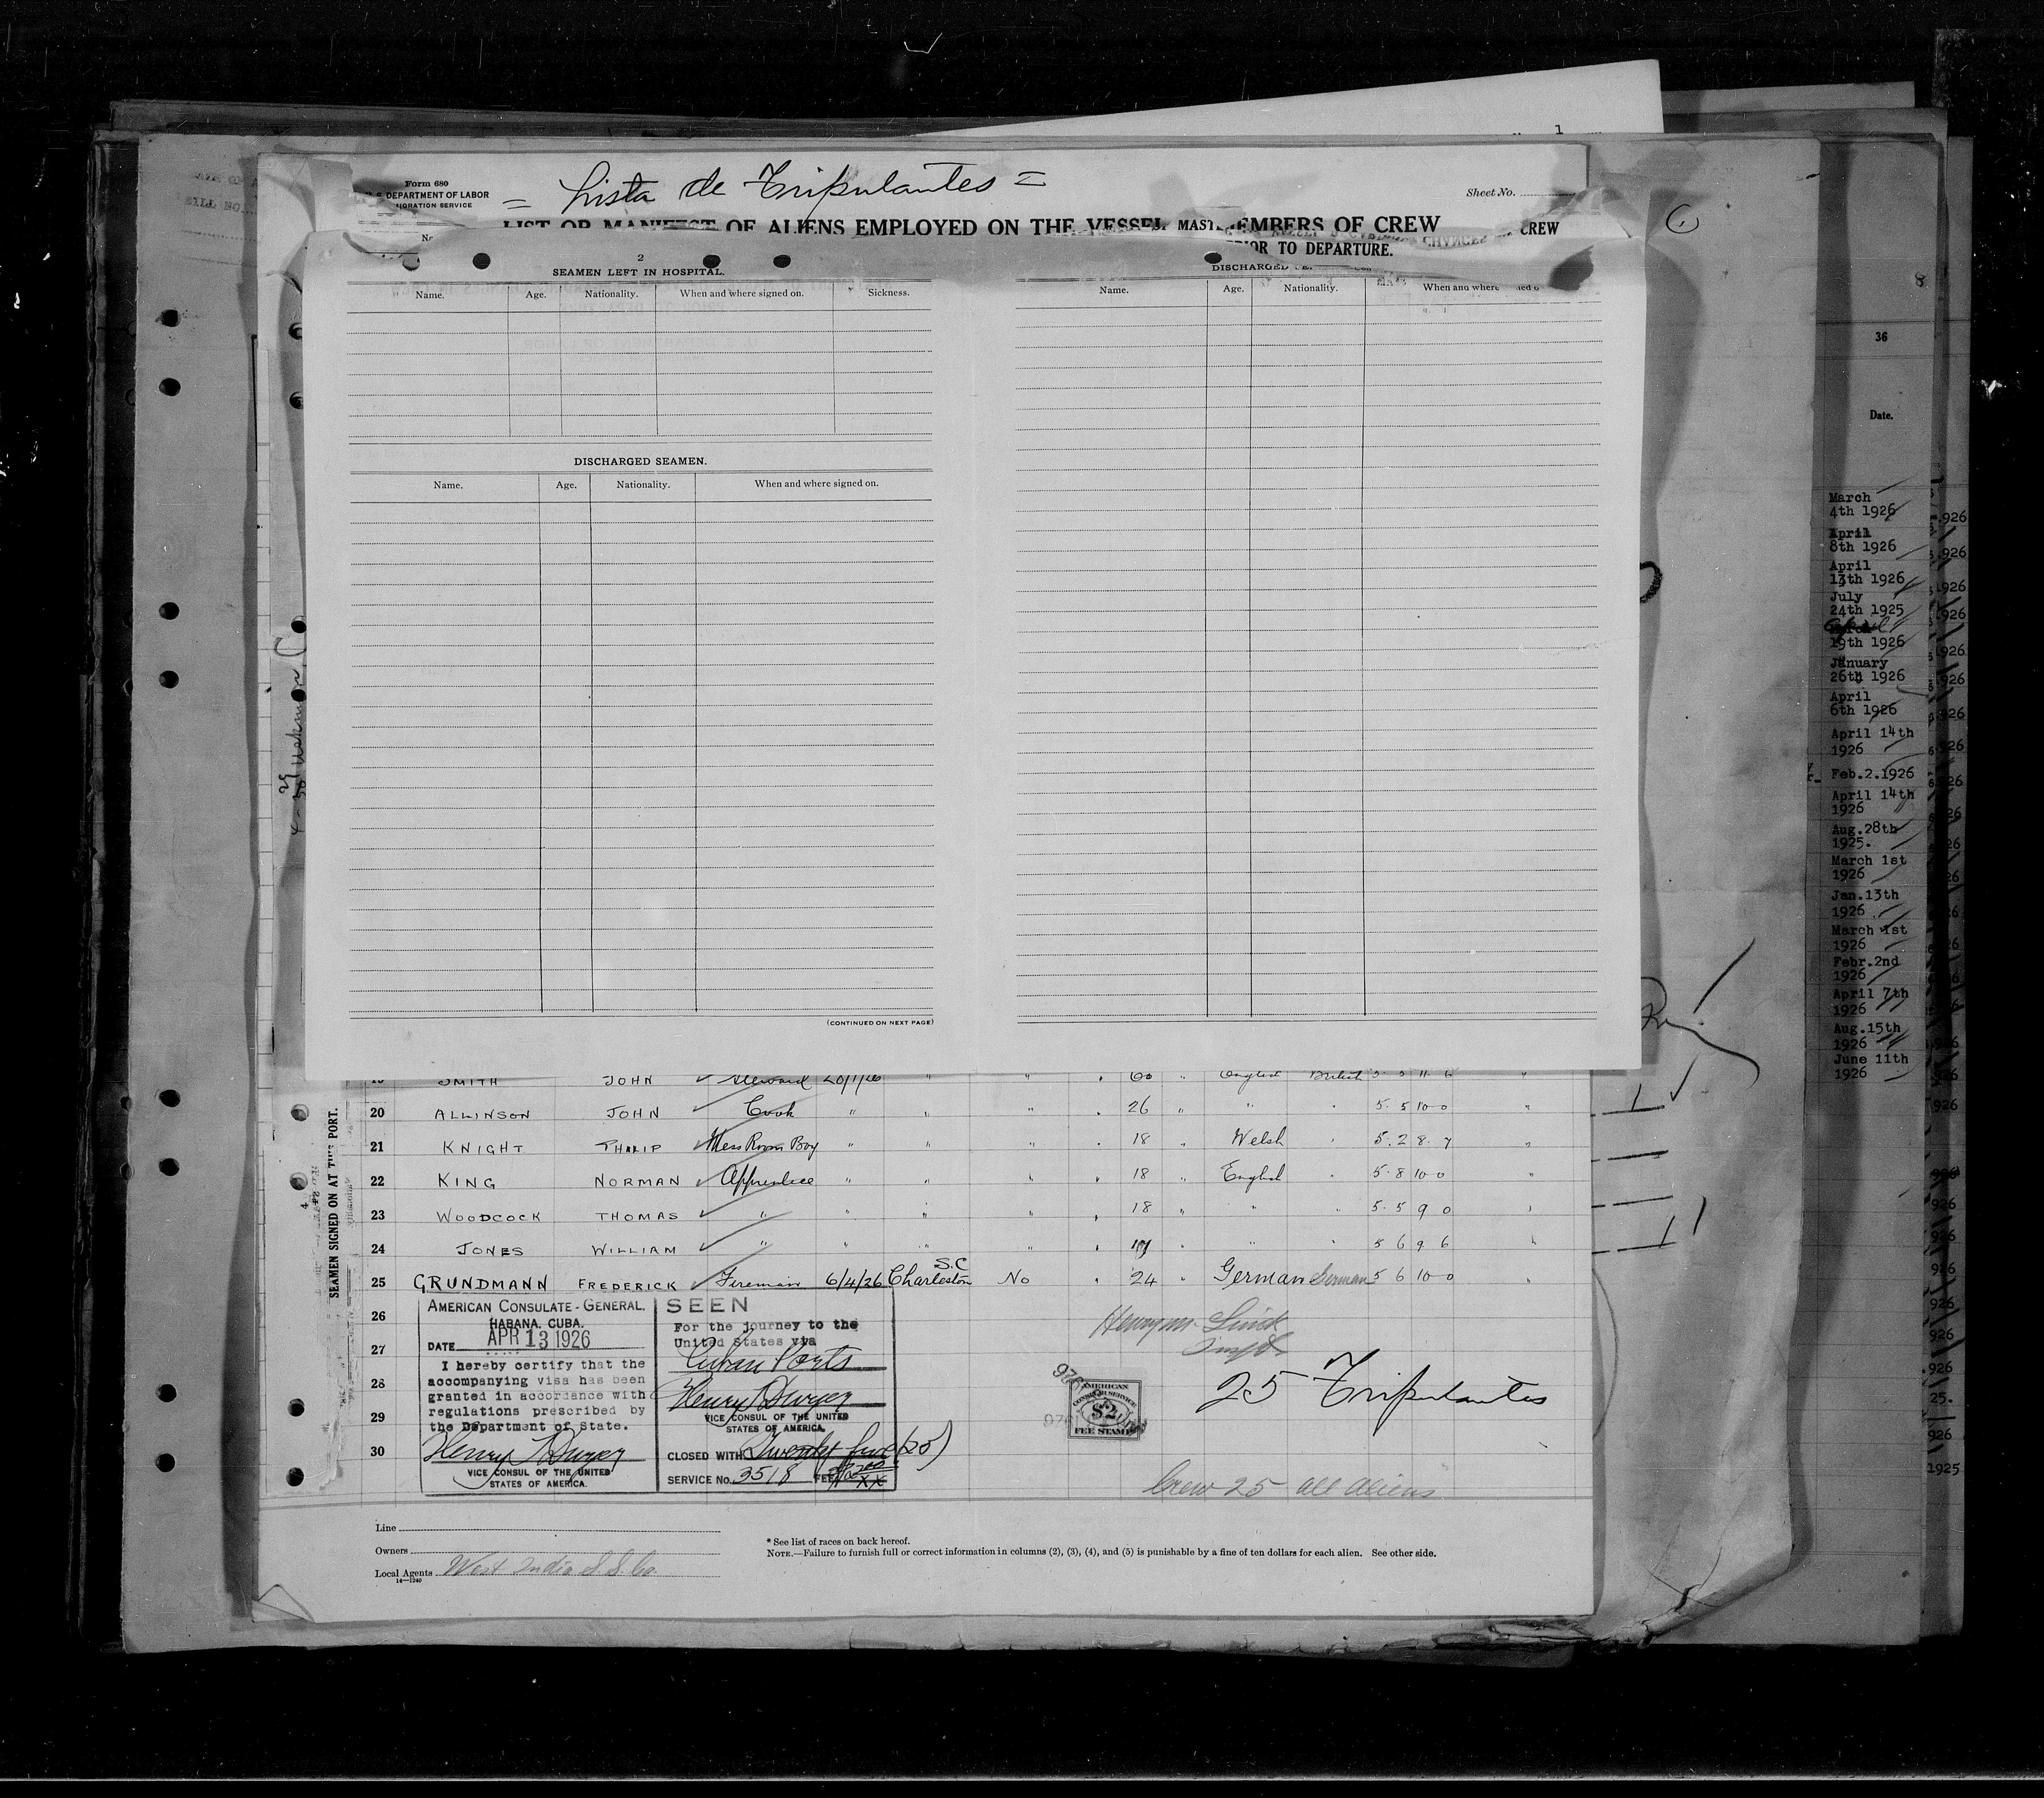 Form 680
DEPARTMENT OF LABOR
= Lista de Tripulantes =
Sheet No.
LIST OR MANIFEST OF ALIENS EMPLOYED ON THE VESSEL MEMBERS OF CREW
CREW
TO DEPARTURE.
2
SEAMEN LEFT IN HOSPITAL.
Name. Age. Nationality. When and where signed on. Sickness.
Name. Age. Nationality. When and where
DISCHARGED SEAMEN.
Name. Age. Nationality. When and where signed on.
(CONTINUED ON NEXT PAGE)
SEAMEN SIGNED ON AT THIS PORT.
SMITH JOHN Steward 20/1/26 " " 60 " English British 5 5 11 6 "
20 ALLINSON JOHN Cook " " " 26 " " 5 5 10 0 "
21 KNIGHT PHILIP Mess Room Boy " " " 18 " Welsh 5 2 8 7 "
22 KING NORMAN Apprentice " " " 18 " English 5 8 10 0 "
23 WOODCOCK THOMAS " " " " 18 " " 5 5 9 0 "
24 JONES WILLIAM " " " " " " 5 6 9 6 "
25 GRUNDMANN FREDERICK Fireman 6/4/26 Charleston S.C No " 24 " German German 5 6 10 0 "
26
27
28
29
30
AMERICAN CONSULATE-GENERAL.
HABANA, CUBA.
DATE APR 13 1926
I hereby certify that the
accompanying visa has been
granted in accordance with
regulations prescribed by
the Department of State.
VICE CONSUL OF THE UNITED
STATES OF AMERICA.
SEEN
For the journey to the
United States via
Cuban Ports
VICE CONSUL OF THE UNITED
STATES OF AMERICA.
CLOSED WITH Twenty five (25)
SERVICE No. 3518 FEE
AMERICAN
CONSULAR SERVICE
$2
FEE STAMP
25 Tripulantes
Crew 25 all aliens
Line
Owners
Local Agents West India S.S. Co.
14—1240
* See list of races on back hereof.
NOTE.—Failure to furnish full or correct information in columns (2), (3), (4), and (5) is punishable by a fine of ten dollars for each alien. See other side.
8
36
Date.
March
4th 1926
April
8th 1926
April
13th 1926
July
24th 1925
19th 1926
January
26th 1926
April
6th 1926
April 14th
1926
Feb.2.1926
April 14th
1926
Aug.28th
1925.
March 1st
1926
Jan.13th
1926
March 1st
1926
Febr.2nd
1926
April 7th
1926
Aug.15th
1926
June 11th
1926